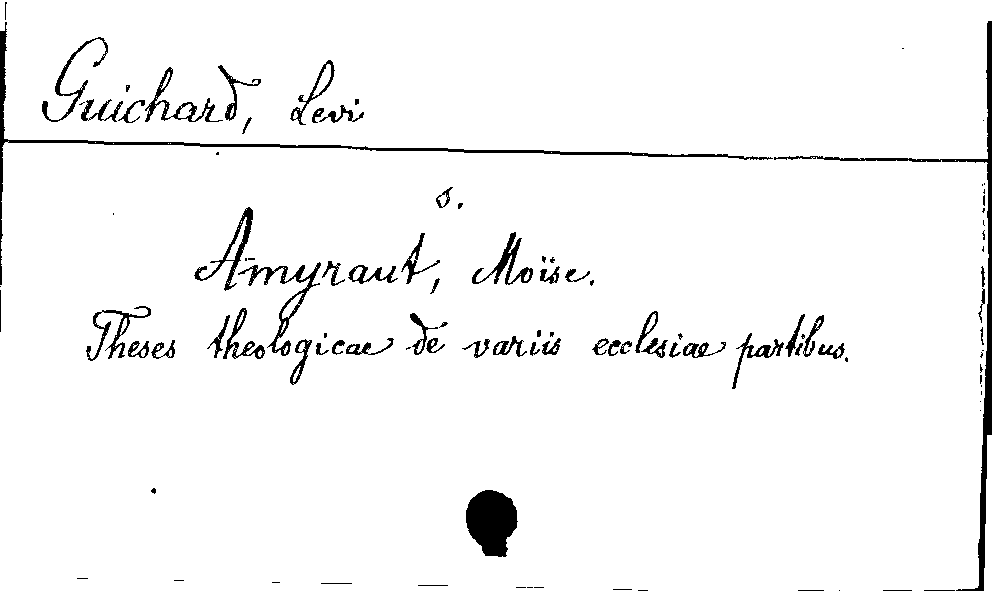 Guichard, Levi
s.
Amyraut, Moïse.
Theses theologicae de variis ecclesiae partibus.